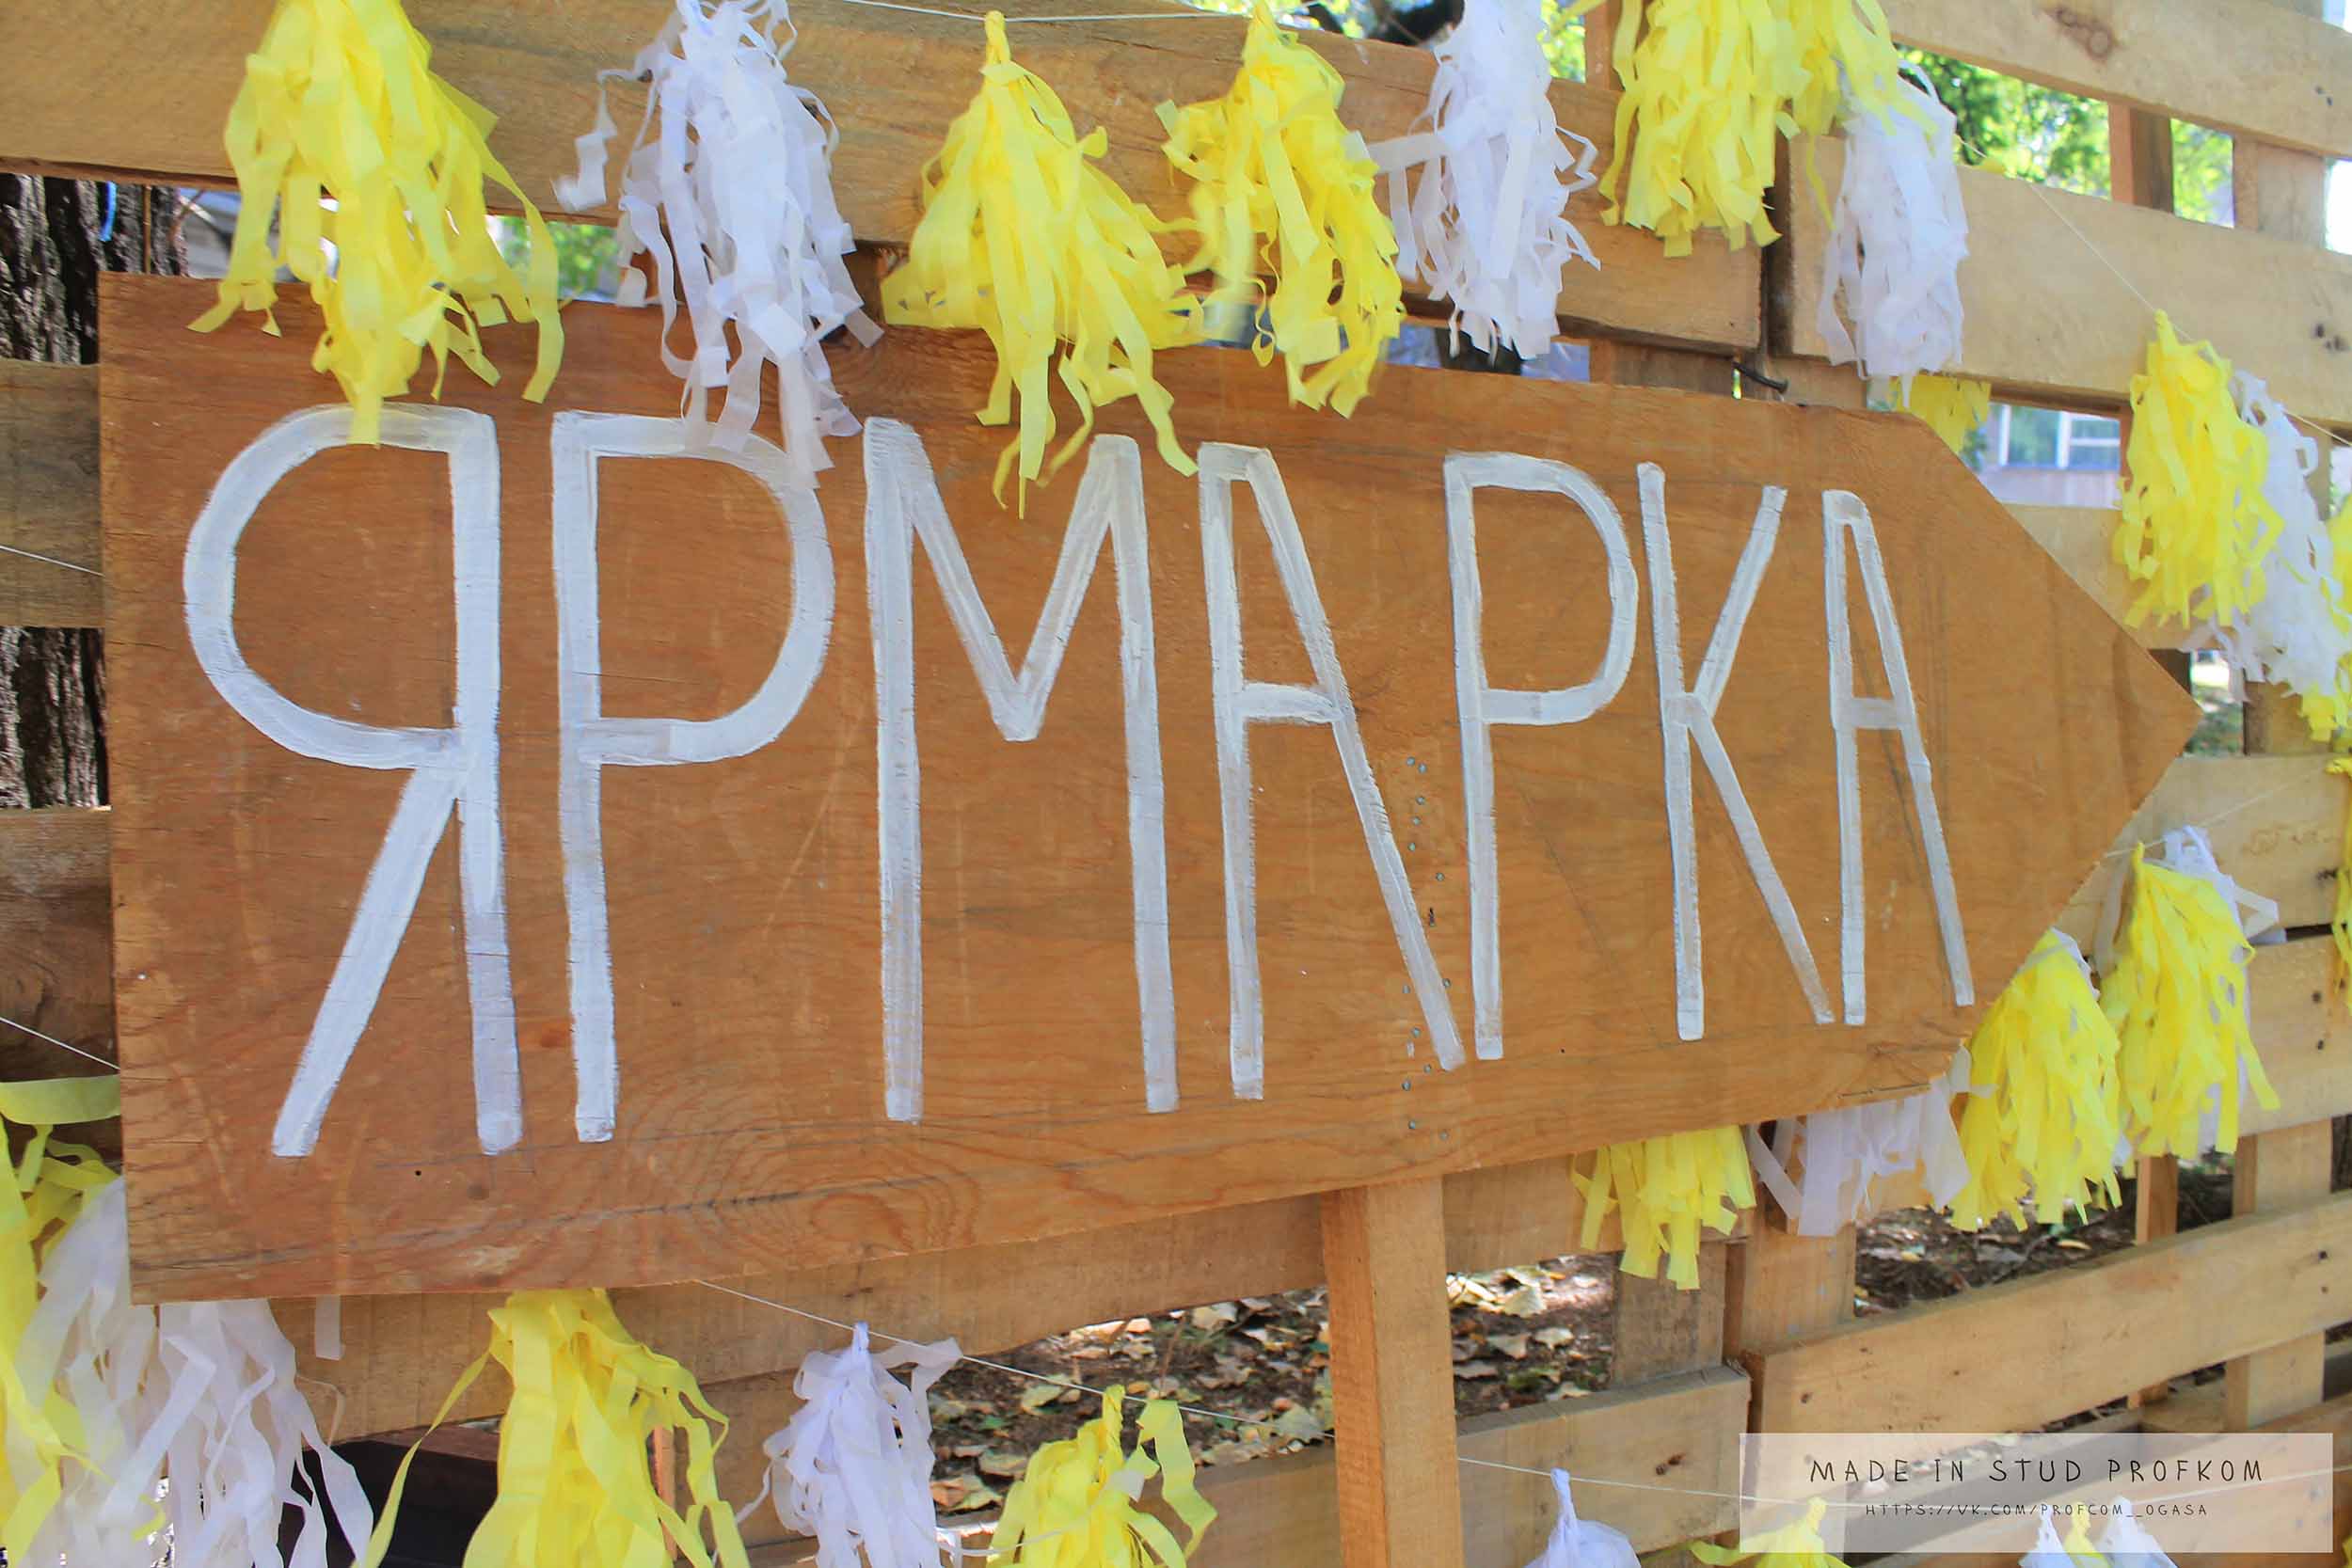 ЯРМАРКА
MADE IN STUD PROFKOM
HTTPS://VK.COM/PROFCOM__OGASA